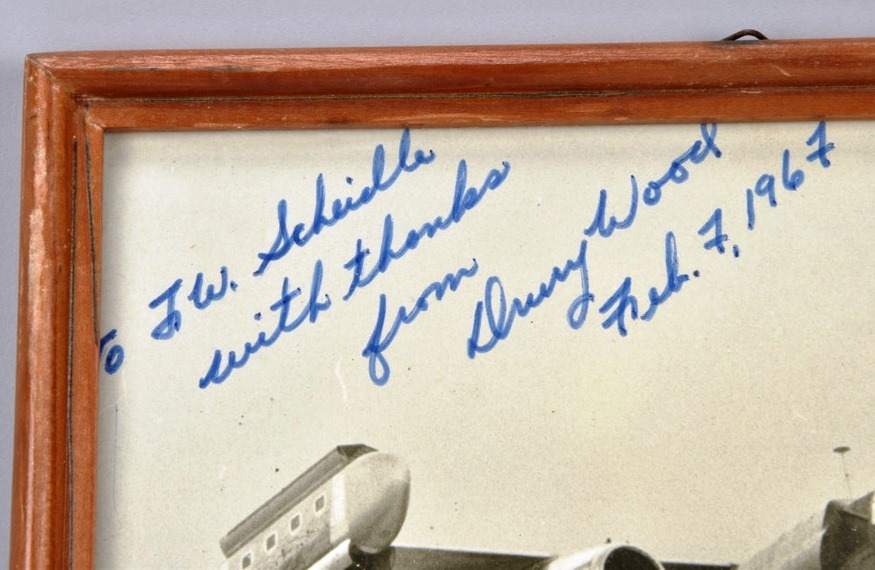 To F.W. Scheidle
with thanks
from
Drury Wood
Feb. 7, 1967